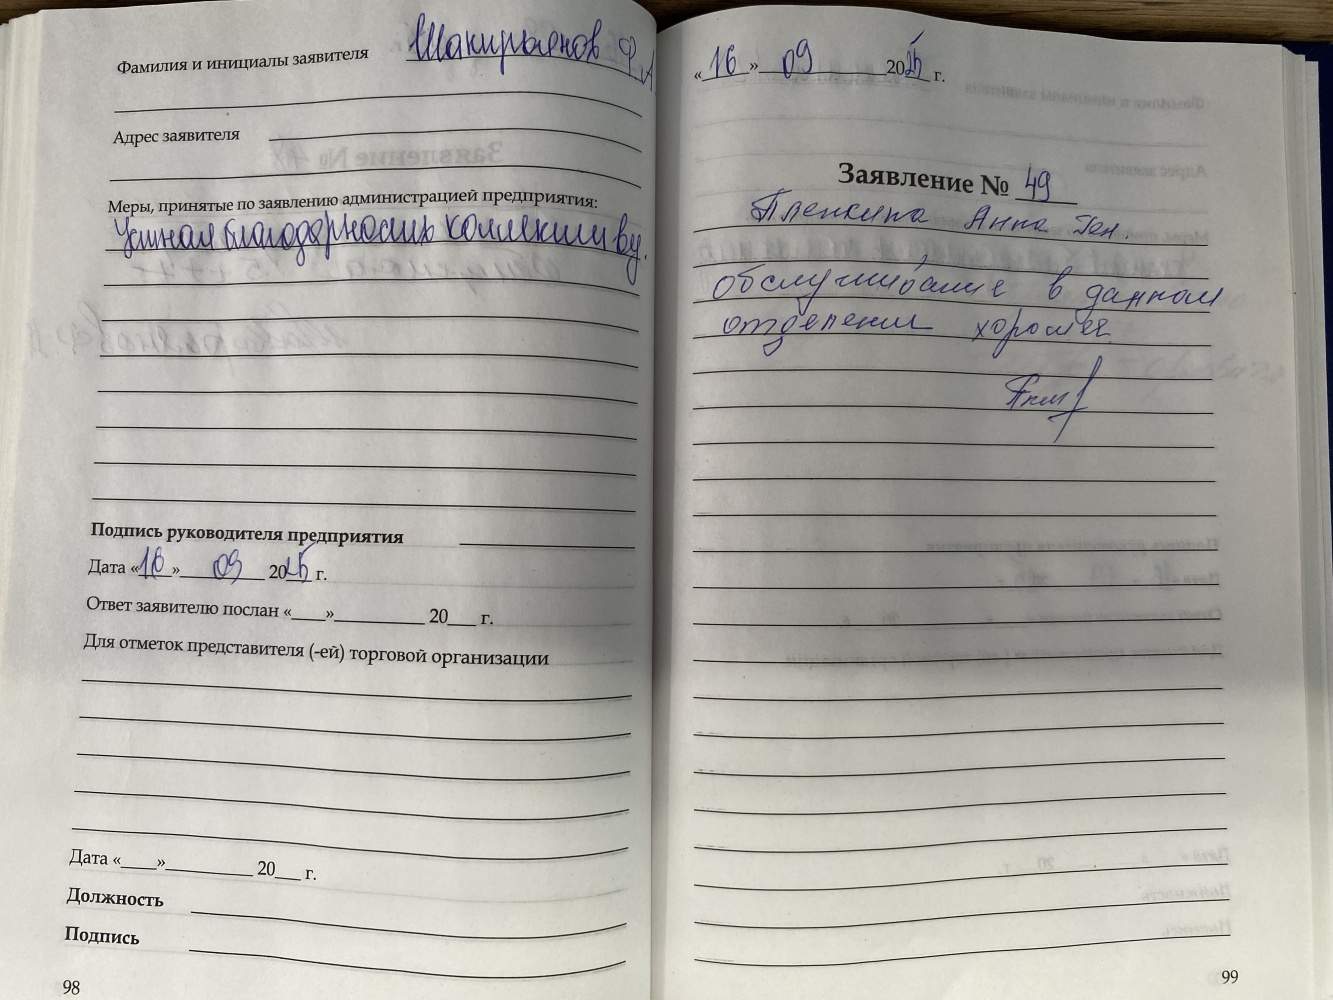 Фамилия и инициалы заявителя Шакирьянов Ф.А
Адрес заявителя
Меры, принятые по заявлению администрацией предприятия:
Устная благодарность коллективу.
Подпись руководителя предприятия
Дата «16» 09 2025 г.
Ответ заявителю послан «____»__________ 20___ г.
Для отметок представителя (-ей) торговой организации
Дата «____»__________ 20___ г.
Должность
Подпись
98
«16» 09 2025 г.
Заявление № 49
Пленкина Анна Ген.
обслуживание в данном
отделении хорошее
99